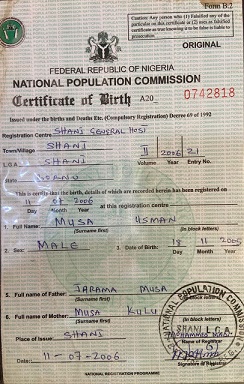 Form B.2
Caution: Any person who (1) Falsified any of the
particulars on this certificate or (2) uses as falsified
certificate as true knowing it to be false is liable to
prosecution.
ORIGINAL
FEDERAL REPUBLIC OF NIGERIA
NATIONAL POPULATION COMMISSION
Certificate of Birth A20 0742818
Issued under the births and Deaths Etc. (Compulsory Registration) Decree 69 of 1992
Registration Centre SHANI GENERAL HOSI
Town/Village SHANI II 2006 21
L.G.A SHANI Volume Year Entry No.
State
This is certify that the birth, details of which are recorded herein has been registered on
11 07 2006 at this registration centre
Day Month Year
1. Full Name: MUSA USMAN
(Surname first) (In block letters)
2. Sex: MALE 3. Date of Birth: 18 11 2006
Day Month Year
5. Full name of Father JARAMA MUSA
(Surname first) (In block letters)
6. Full name of Mother: MUSA KULU
(Surname first) (In block letters)
Place of Issue: SHANI
Name of Registrar
Date: 11-07-2006
Signature of Registrar
NATIONAL POPULATION COMMISSION
SHANI L.G.A.